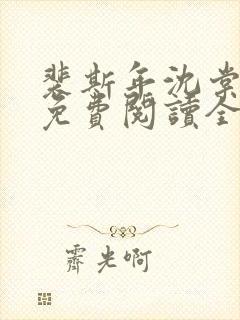 裴斯年沈棠
免費閱讀全
霽光啊